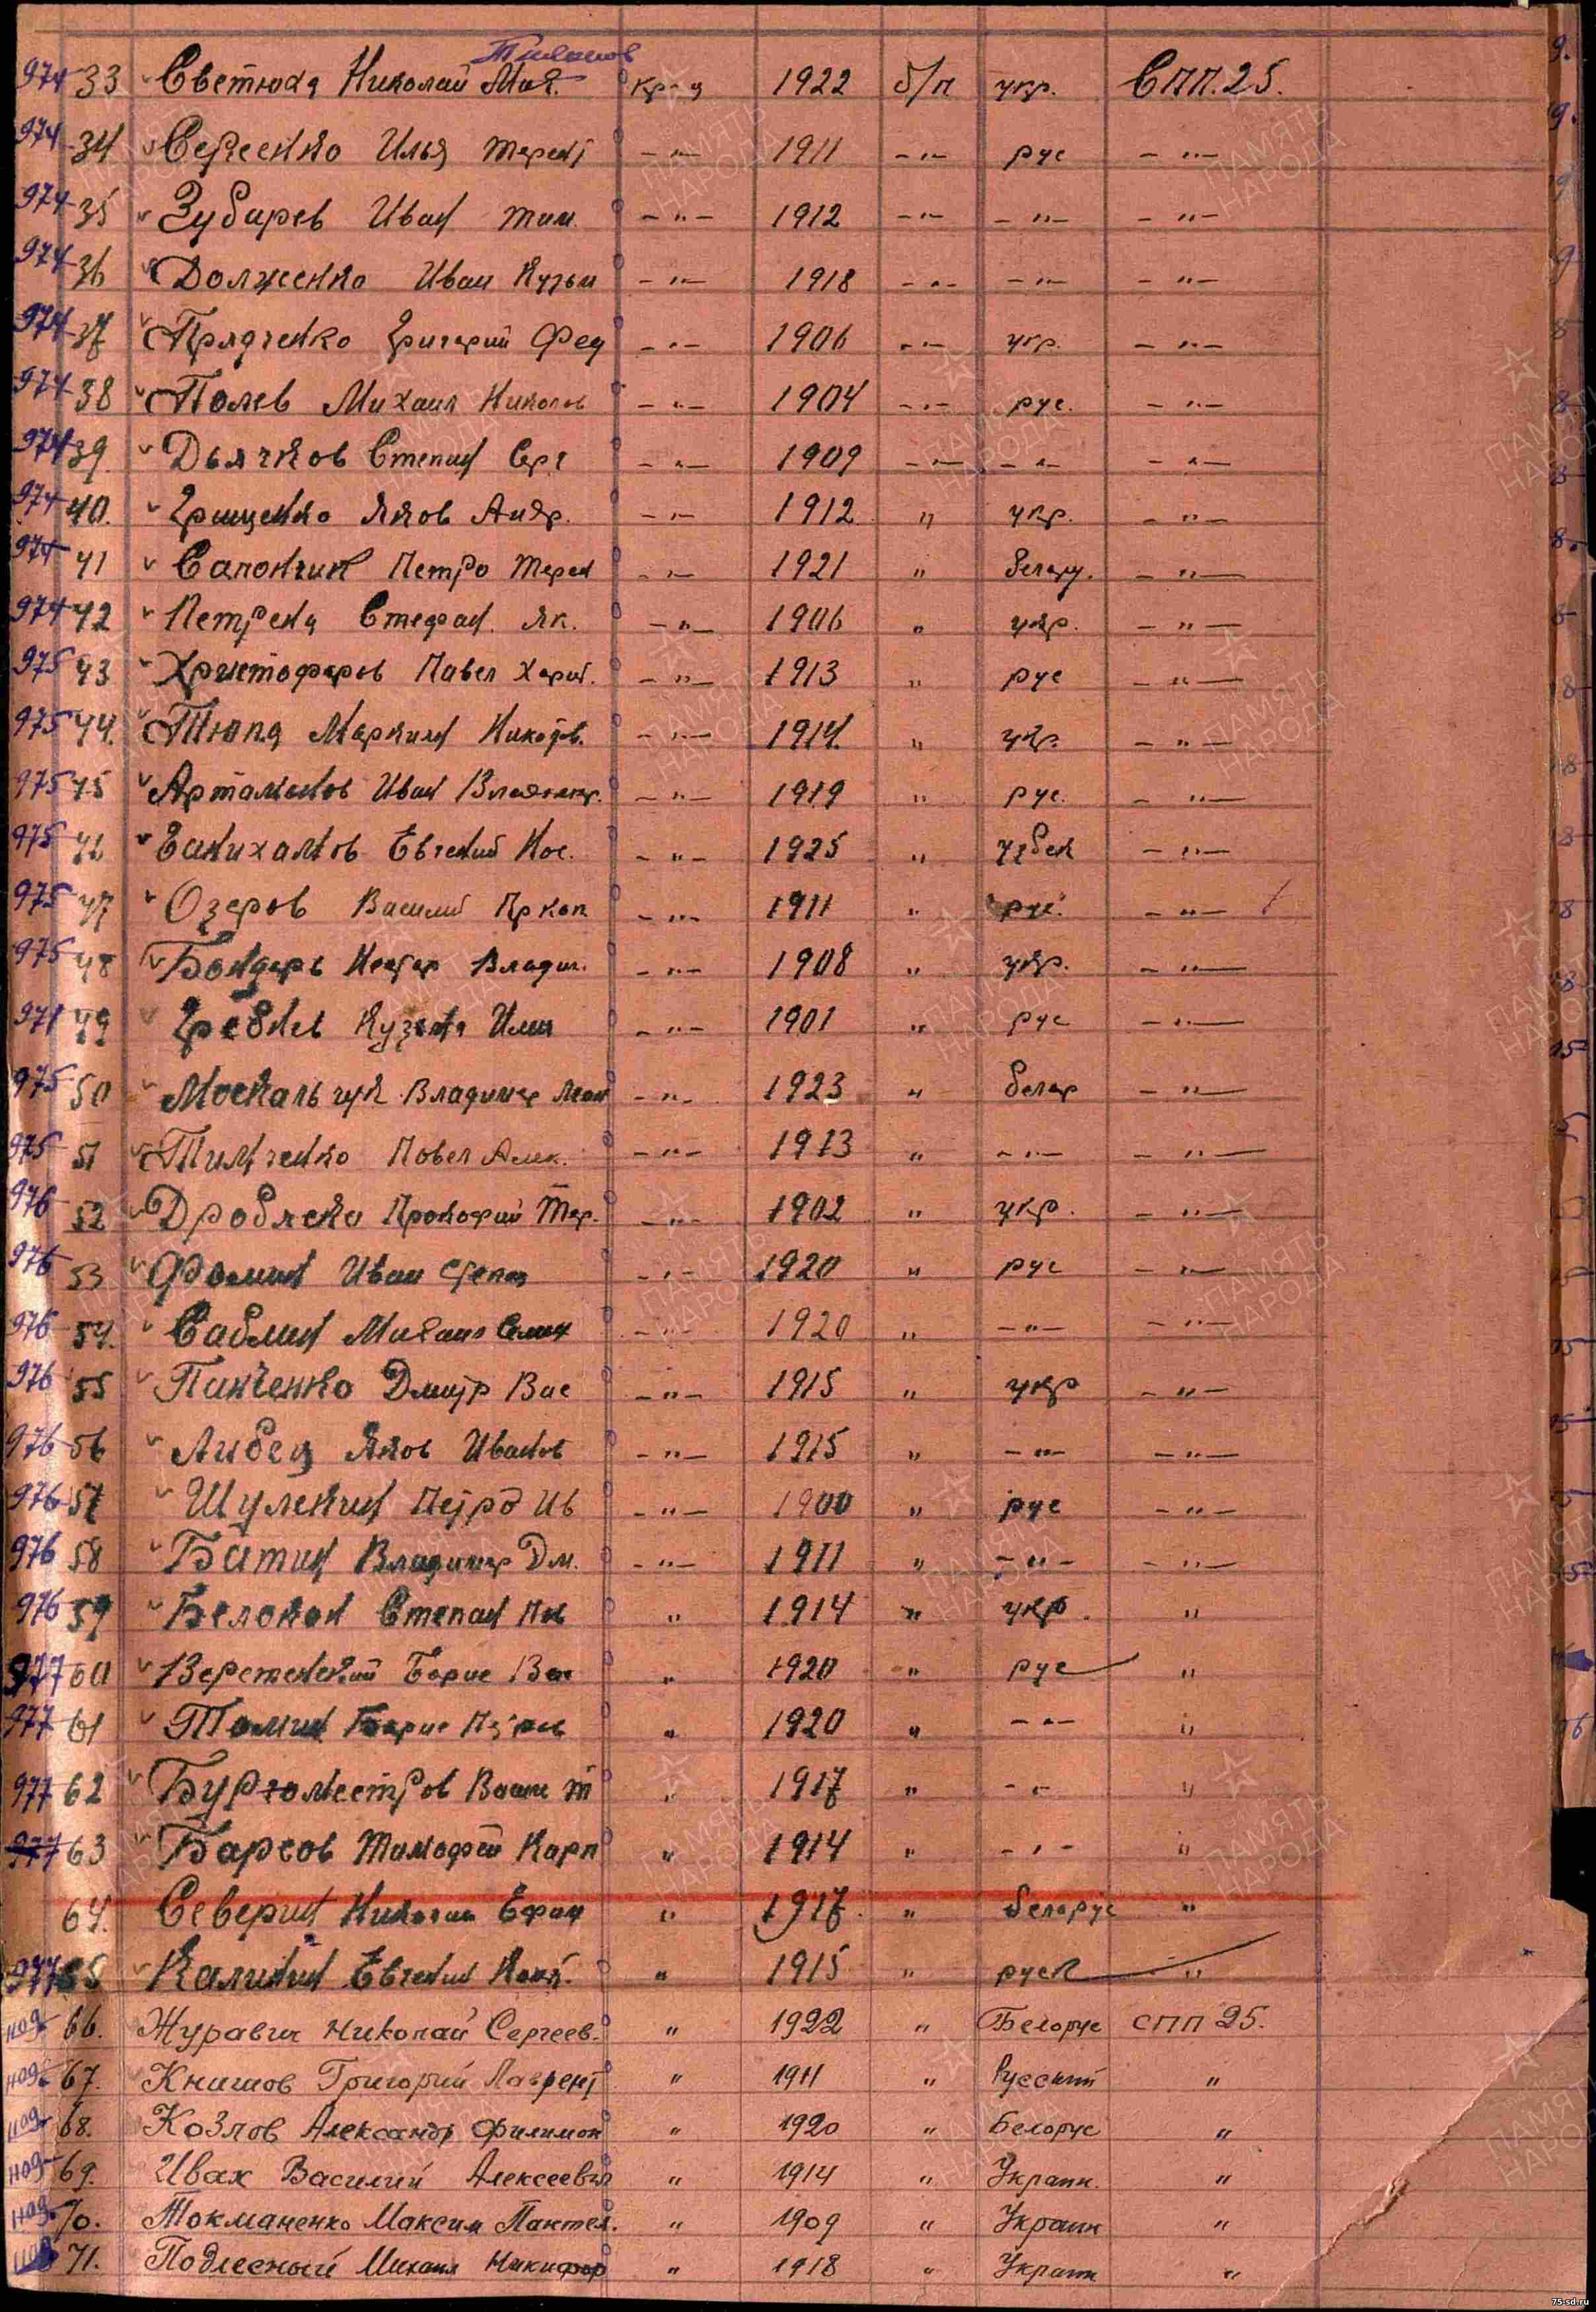 974 33 Светюха Николай Мая. Тихонов кр-ц 1922 б/п укр. СПП.25.
974 34 Сергеенко Илья Терент -"- 1911 -"- рус -"-
974 35 Зубарев Иван Тим. -"- 1912 -"- -"- -"-
974 36 Долженко Иван Кузьм -"- 1918 -"- -"- -"-
974 37 Прядченко Григорий Фед -"- 1906 -"- укр. -"-
974 38 Полев Михаил Николов -"- 1904 -"- рус. -"-
974 39. Дьячков Степан Серг -"- 1909 -"- -"- -"-
974 40. Грищенко Яков Андр. -"- 1912 " укр. -"-
974 41 Сапончик Петро Терен -"- 1921 " белару. -"-
974 42 Петреня Стефан. Як. -"- 1906 " укр. -"-
975 43 Христофоров Павел Харит. -"- 1913 " рус -"-
975 44. Тюпа Маркиян Никодов. -"- 1914. " укр. -"-
975 45 Артамонов Иван Владимир. -"- 1919 " рус. -"-
975 46 Ганихамов Евгений Иос. -"- 1925 " узбек -"-
975 47 Озеров Василий Пркоп -"- 1911 " рус. -"-
975 48 Бондарь Нестер Владим. -"- 1908 " укр. -"-
971 49 Гребнев Кузьма Илии -"- 1901 " рус -"-
975 50 Москальчук Владимир Леон -"- 1923 " белар -"-
975 51 Тимченко Повел Алек. -"- 1913 " -"- -"-
976 52 Дробляко Прокофий Тер. -"- 1902 " укр. -"-
976 53 Фомин Иван Степан -"- 1920 " рус -"-
976 54. Саблин Михаил Семен -"- 1920 " -"- -"-
976 55 Панченко Дмитр Вас -"- 1915 " укр -"-
976 56 Либец Яков Иванов -"- 1915 " -"- -"-
976 57 Шуленин Петро Ив -"- 1900 " рус -"-
976 58 Батин Владимир Дм. -"- 1911 " -"- -"-
976 59 Белокон Степан " 1914 " укр. "
977 60 Веретенский Борис Вас " 1920 " рус "
977 61 Томин Борис " 1920 " -"- "
977 62 Бургоместров Васил Т " 1917 " -"- "
977 63 Барсов Тимофей Карп " 1914 " -"- "
64. Северин Николай Ефим " 1917. " беларус "
977 65 Калинин Евгений " 1915 " руск "
ноя 66. Журавич Николай Сергеев. " 1922 " Белорус СПП 25.
ноя 67. Книшов Григорий Лаврент " 1911 " Русский "
ноя 68. Козлов Александр Филимон " 1920 " Белорус "
ноя 69. Ивах Василий Алексеевич " 1914 " Украин. "
ноя 70. Токманенко Максим Пантел. " 1909 " Украин "
ноя 71. Подлесный Михаил Никифор " 1918 " Украин "
ПАМЯТЬ НАРОДА
75-sd.ru